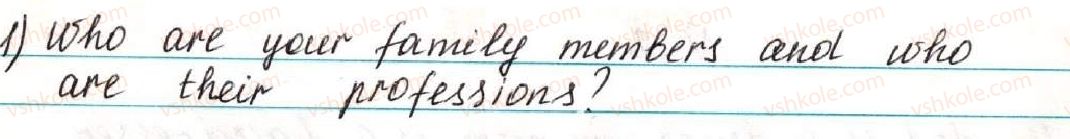 1) Who are your family members and who
are their professions?